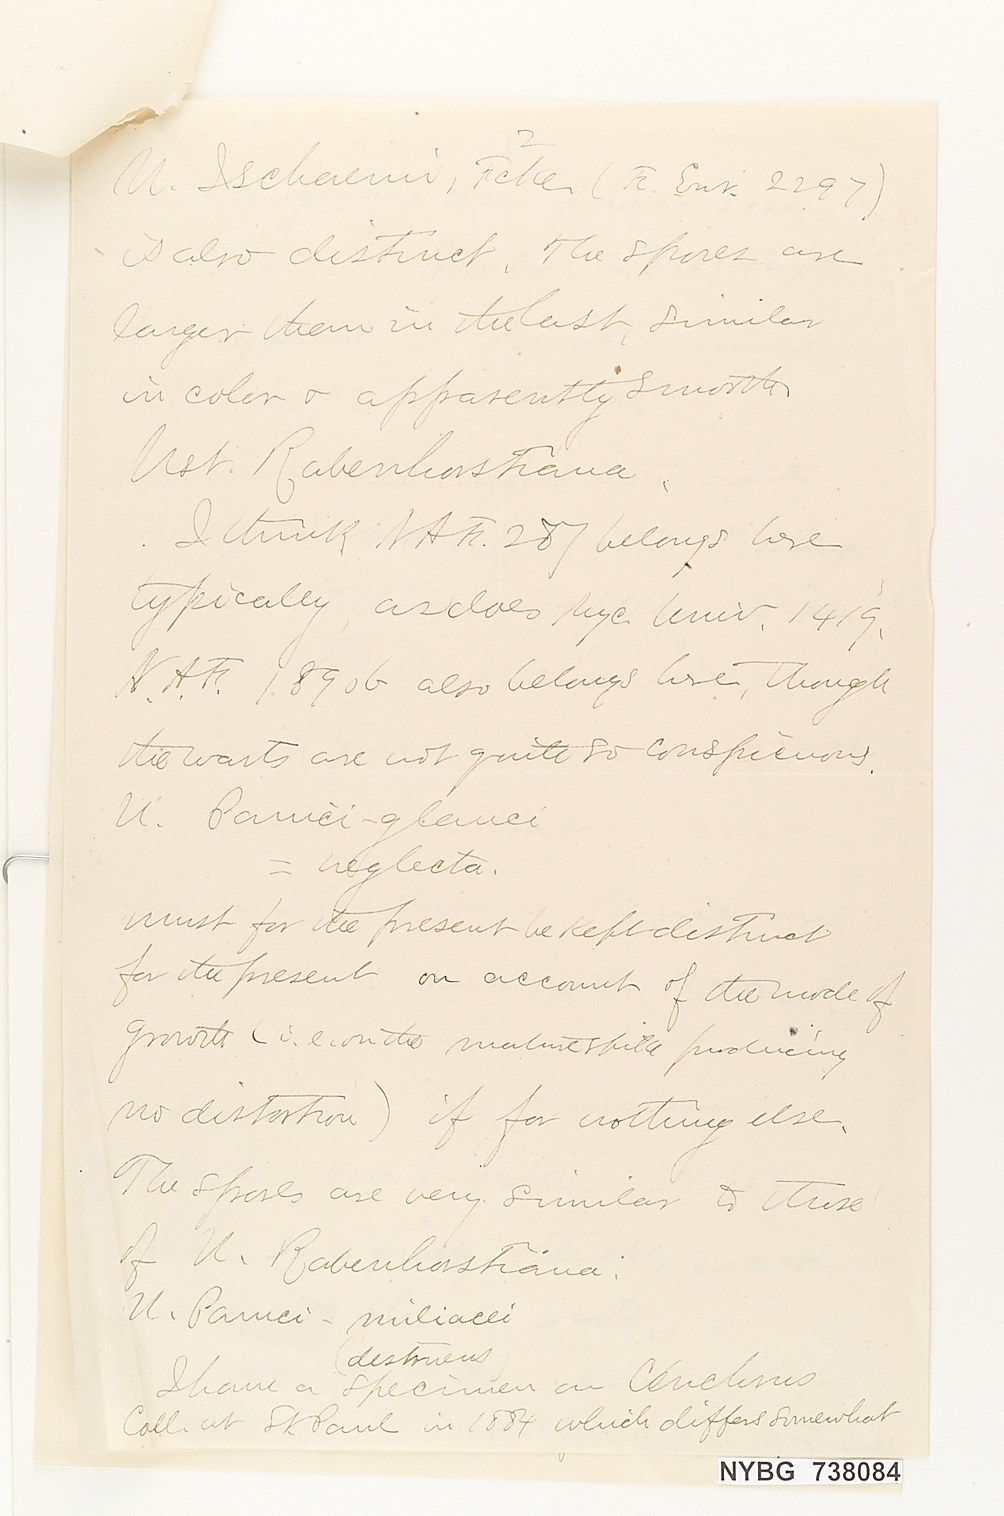 2
U. Ischaemi, Fckl. (F. Eur. 2297)
is also distinct. The spores are
larger than in the last, similar
in color & apparently smooth.
Ust. Rabenhorstiana.
I think N.A.F. 287 belongs here
typically, as does Myc. Univ. 1419.
N.A.F. 1890b also belongs here, though
the warts are not quite so conspicuous.
U. Panici-glauci
= neglecta.
must for the present be kept distinct
for the present on account of the mode of
growth (i.e. on the mature spike producing
no distortion) if for nothing else.
The spores are very similar to those
of U. Rabenhorstiana.
U. Panici-miliacei
(destruens
I have a specimen on Cenchrus
Coll. at St. Paul in 1884 which differs somewhat
NYBG 738084